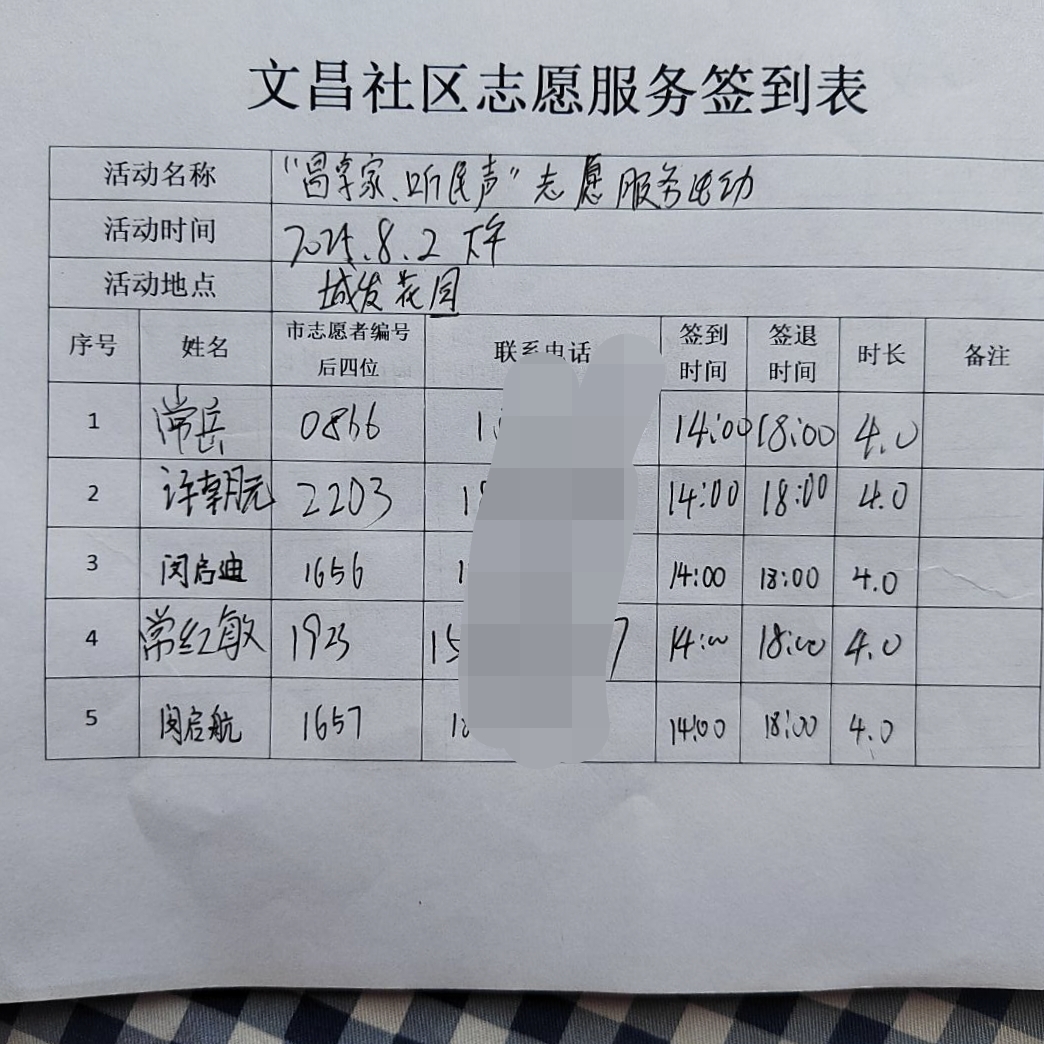 文昌社区志愿服务签到表
活动名称 "冒享家、听民声"志愿服务活动
活动时间 2025.8.2 下午
活动地点 城发花园
序号 姓名 市志愿者编号后四位 联系电话 签到时间 签退时间 时长 备注
1 常岳 0866 1 14:00 18:00 4.0
2 许朝元 2203 1 14:00 18:00 4.0
3 闵启迪 1656 1 14:00 18:00 4.0
4 常红敏 1923 15 7 14:00 18:00 4.0
5 闵启航 1657 1 14:00 18:00 4.0